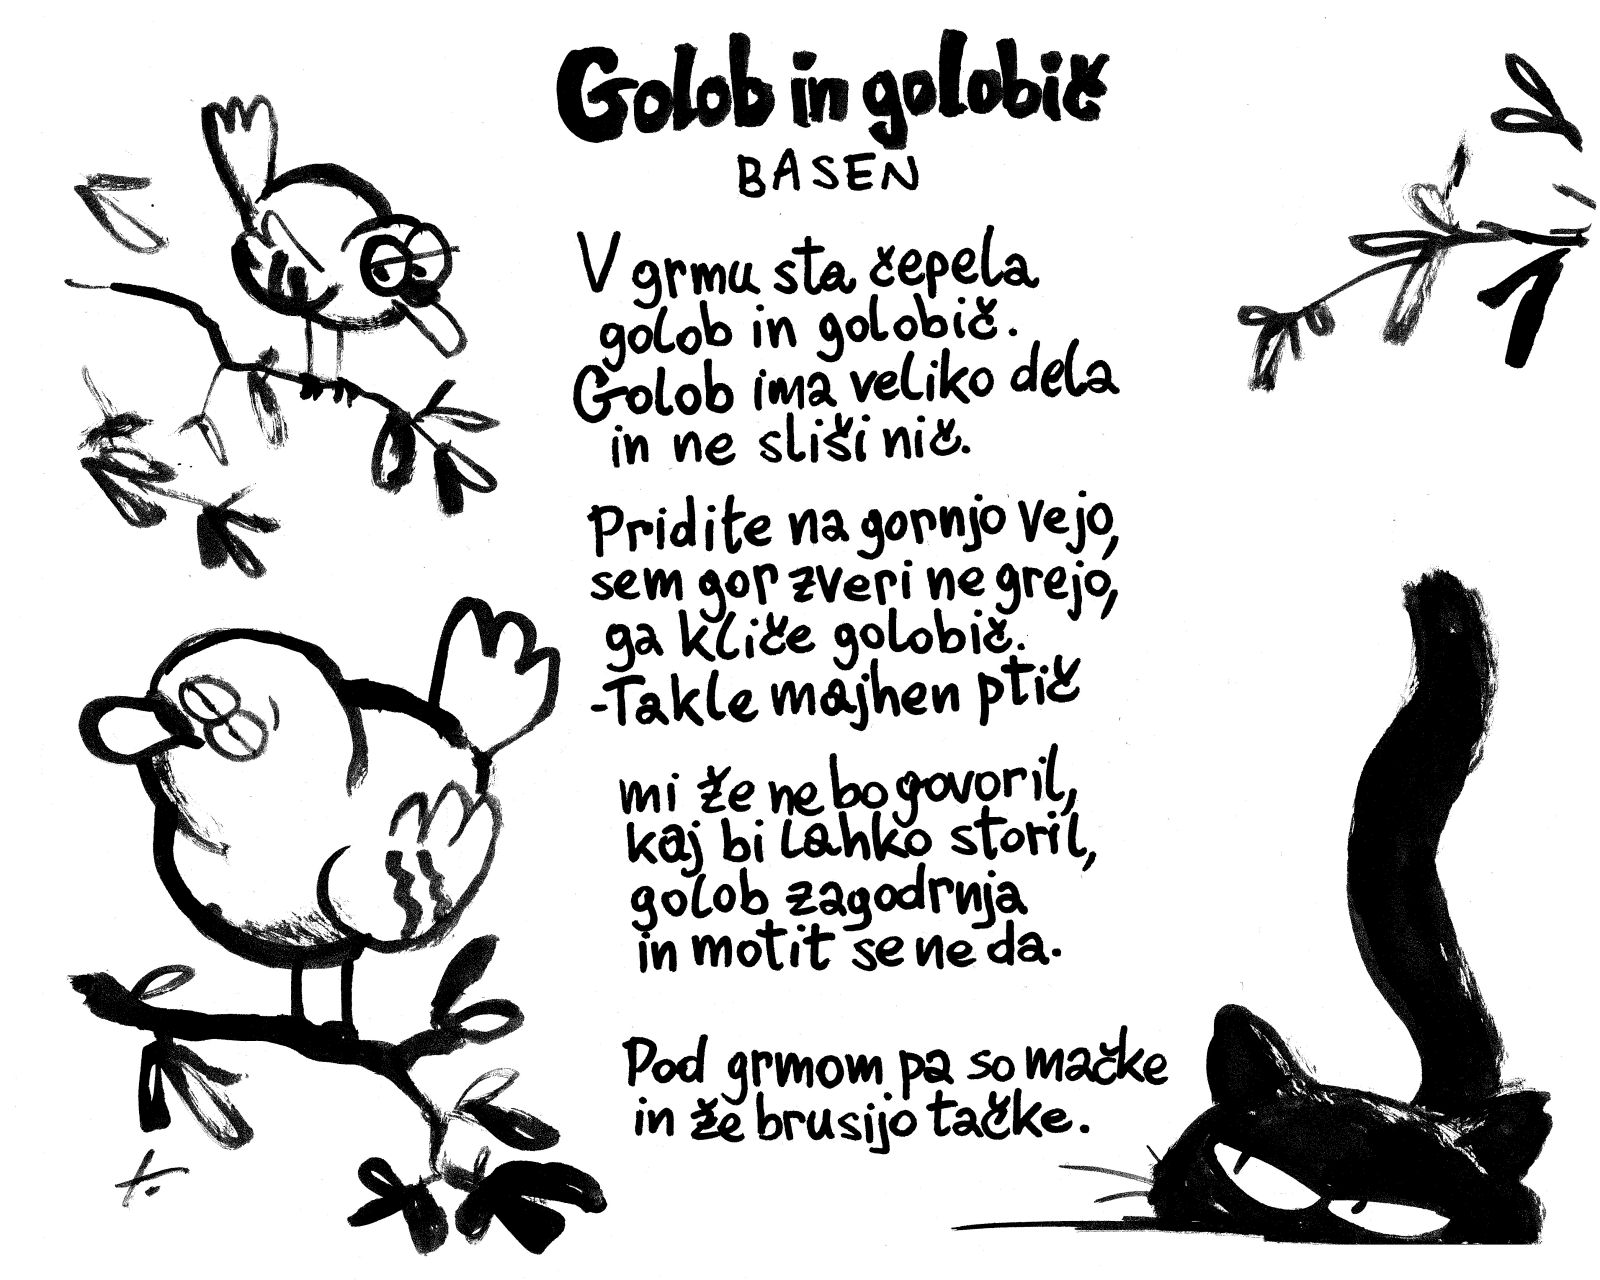 Golob in golobič
BASEN
V grmu sta čepela
golob in golobič.
Golob ima veliko dela
in ne sliši nič.
Pridite na gornjo vejo,
sem gor zveri ne grejo,
ga kliče golobič.
-Takle majhen ptič
mi že ne bo govoril,
kaj bi lahko storil,
golob zagodrnja
in motit se ne da.
Pod grmom pa so mačke
in že brusijo tačke.